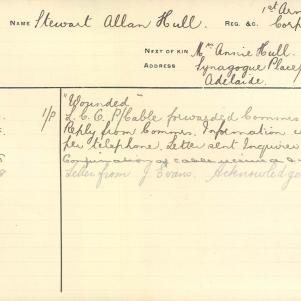 NAME Stewart Allan Hull. REG. &C. 1st Arm
Corp
NEXT OF KIN Mrs Annie Hull.
ADDRESS Synagogue Place
Adelaide.
"Wounded"
1/P L.C.C. P/Cable forwarded Commrs
Reply from Commrs. Information
per telephone. Letter sent Inquirer
Confirmation of cable
Letter from J Evans. Acknowledge